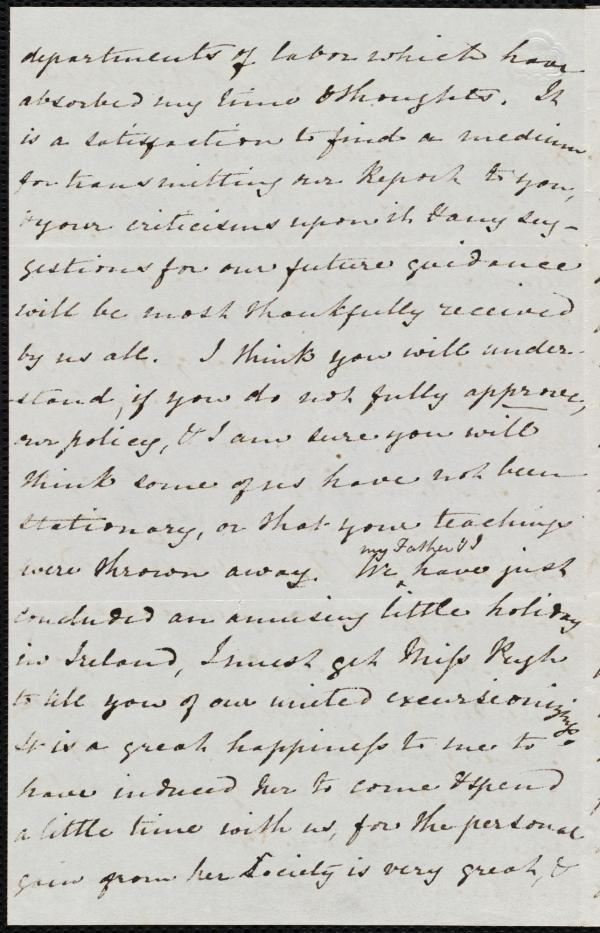 departments of labor which have
absorbed my time & thoughts. It
is a satisfaction to find a medium
for transmitting our Report to you,
& your criticisms upon it & any sug-
gestions for our future guidance
will be most thankfully received
by us all. I think you will under-
stand, if you do not fully approve,
our policy, & I am sure you will
think some of us have not been
stationary, or that your teachings
were thrown away. We my Father & I have just
concluded an amusing little holiday
in Ireland, I must get Miss Pugh
to tell you of our united excursionizings.
It is a great happiness to me to
have induced her to come & spend
a little time with us, for the personal
gain from her Society is very great, &